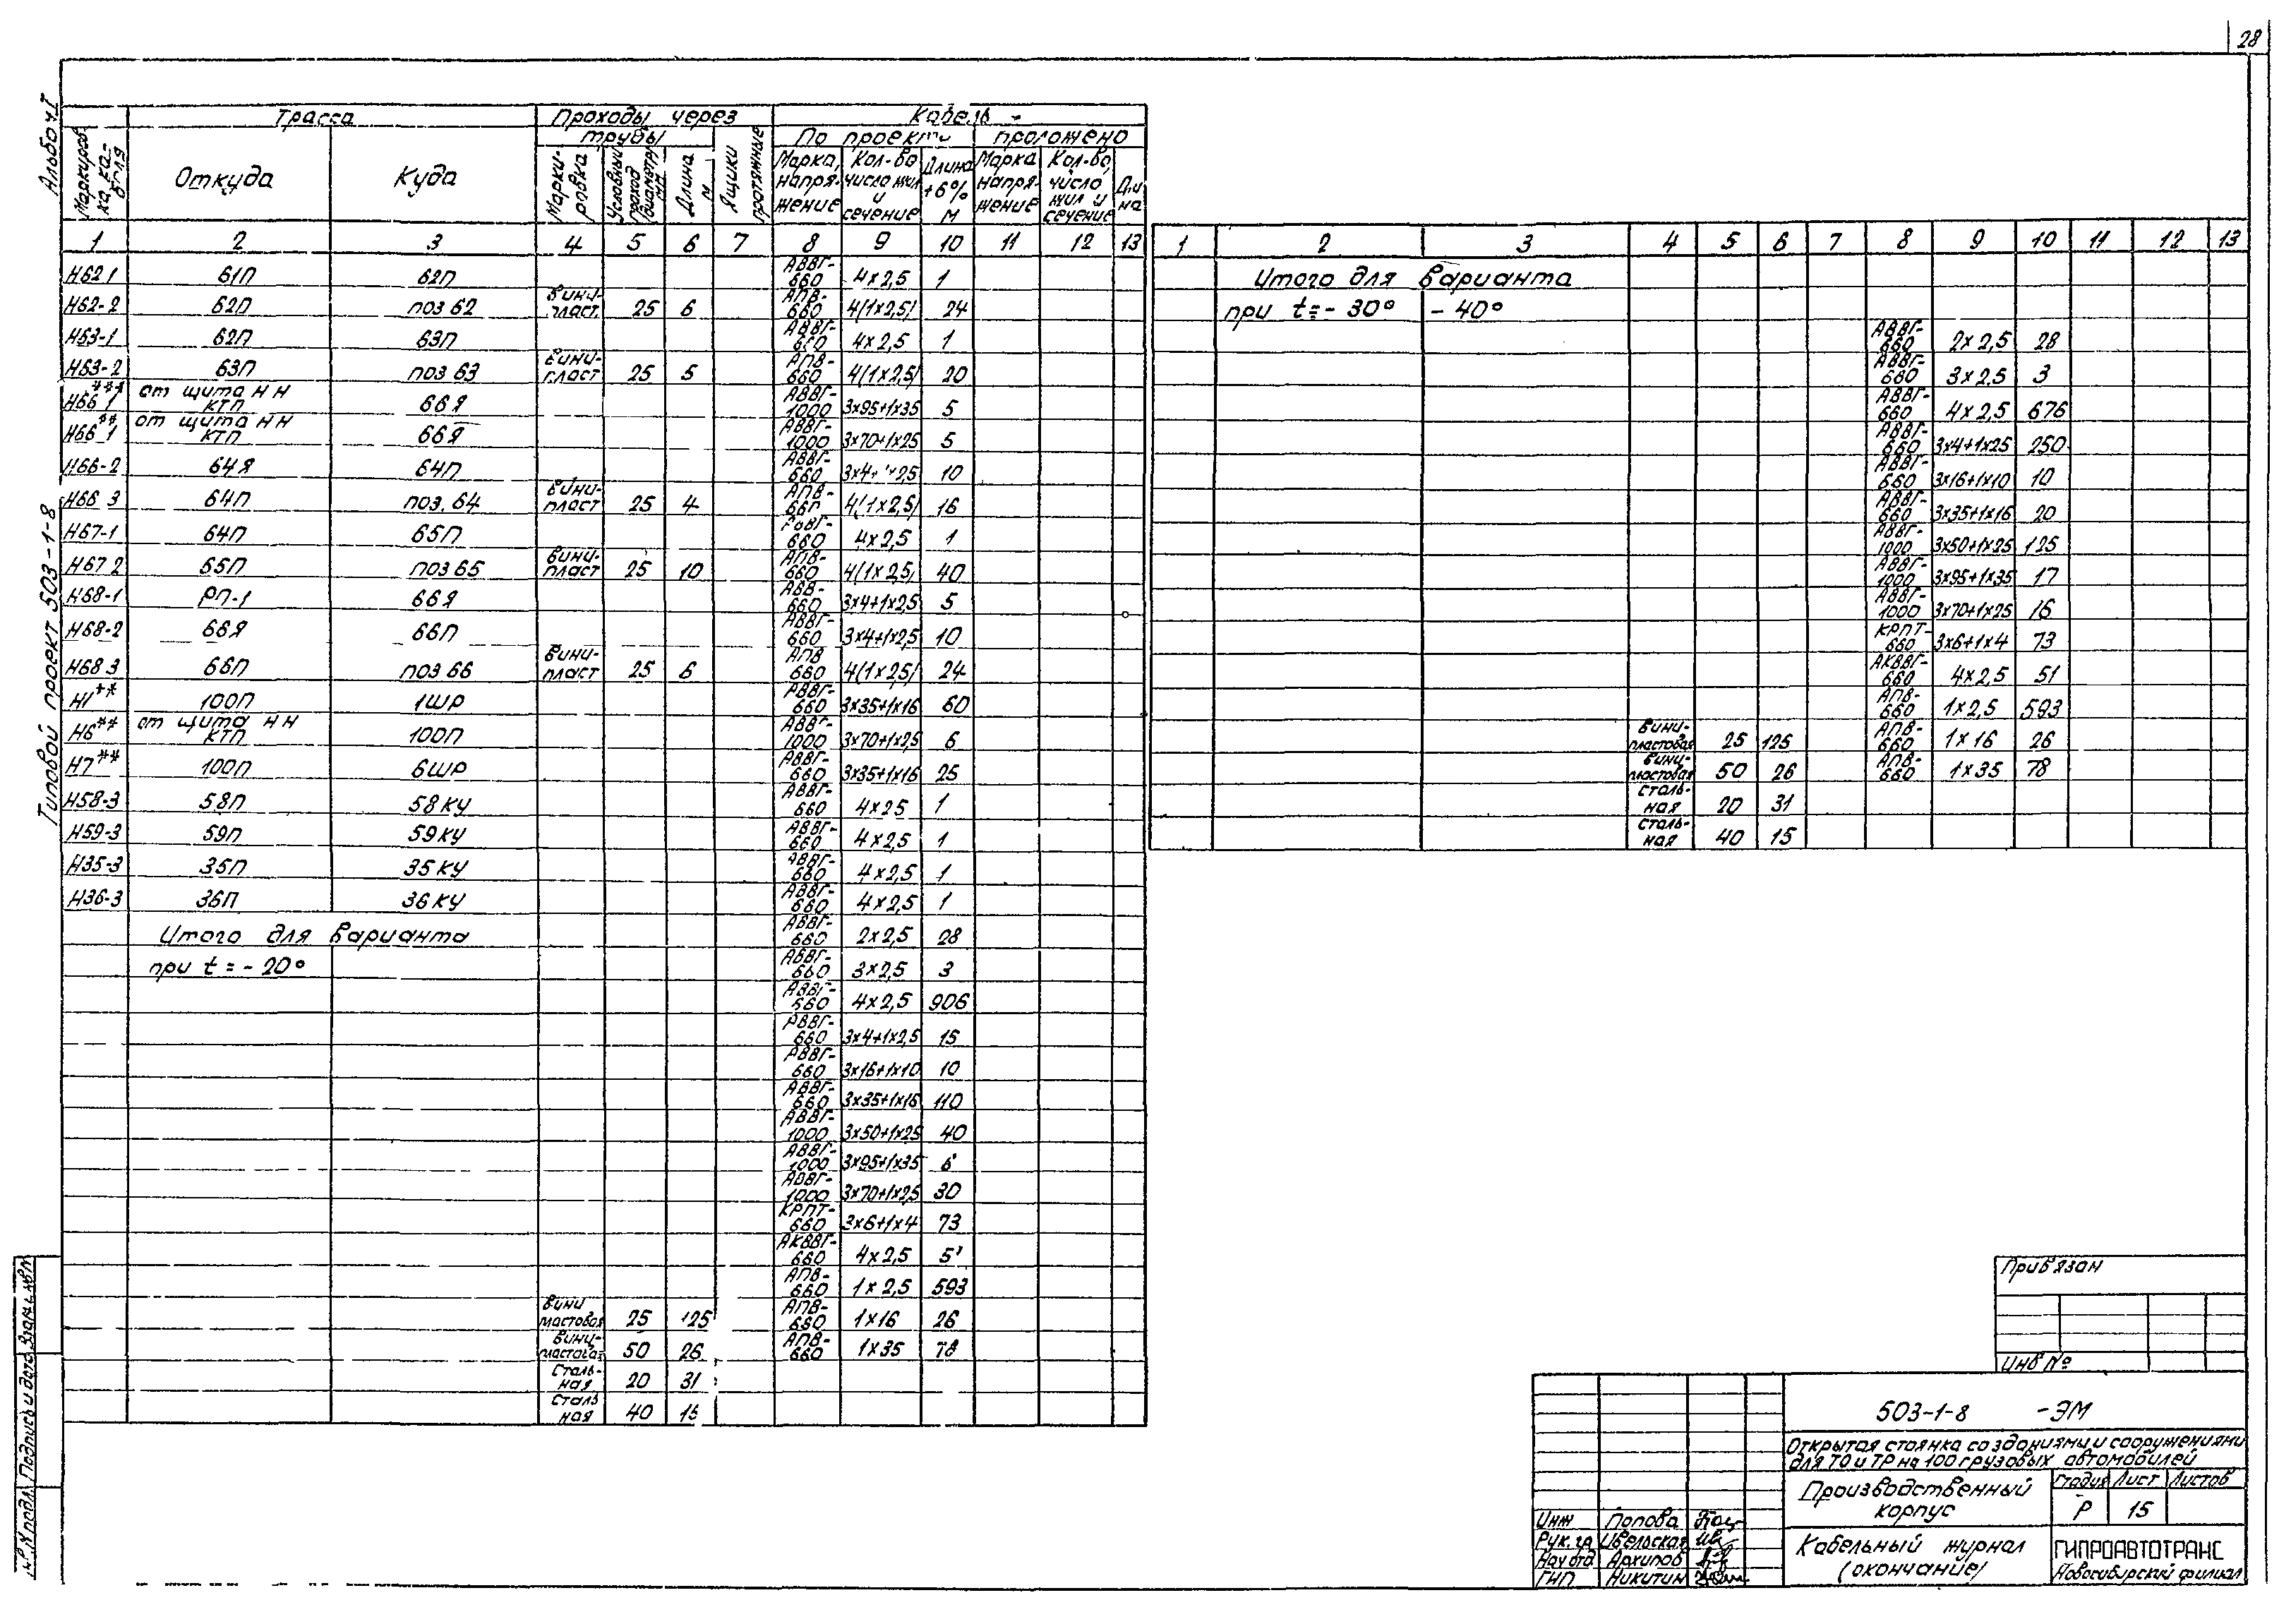 28
Альбом I
Типовой проект 503-1-8
Маркировка кабеля | Трасса | Проходы через | Кабель
трубы | Ящики протяжные | По проекту | проложено
Откуда | Куда | Маркировка | Условный проход (диаметр) мм | Длина м | Марка, напряжение | Кол-во число жил и сечение | Длина +6% м | Марка напряжение | Кол-во, число жил и сечение | Длина
1 2 3 4 5 6 7 8 9 10 11 12 13
Н62 1 61П 62П АВВГ-660 4х2,5 1
Н62-2 62П поз 62 винипласт. 25 6 АПВ-660 4(1х2,5) 24
Н63-1 62П 63П АВВГ-660 4х2,5 1
Н63-2 63П поз 63 винипласт 25 5 АПВ-660 4(1х2,5) 20
Н66*** 1 от щита НН КТП 66Я АВВГ-1000 3х95+1х35 5
Н66** 1 от щита НН КТП 66Я АВВГ-1000 3х70+1х25 5
Н66-2 64Я 64П АВВГ-660 3х4+1х2,5 10
Н66 3 64П поз. 64 винипласт 25 4 АПВ-660 4(1х2,5) 16
Н67-1 64П 65П АВВГ-660 4х2,5 1
Н67 2 65П поз 65 винипласт 25 10 АПВ-660 4(1х2,5) 40
Н68-1 РП-1 66Я АВВ-660 3х4+1х2,5 5
Н68-2 66Я 66П АВВГ-660 3х4+1х2,5 10
Н68 3 66П поз 66 винипласт 25 6 АПВ 660 4(1х2,5) 24
Н1** 100П 1ШР АВВГ-660 3х35+1х16 60
Н6** от щита НН КТП 100П АВВГ-1000 3х70+1х25 6
Н7** 100П 6ШР АВВГ-660 3х35+1х16 25
Н58-3 58П 58КУ АВВГ-660 4х25 1
Н59-3 59П 59КУ АВВГ-660 4х2,5 1
Н35-3 35П 35КУ АВВГ-660 4х2,5 1
Н36-3 36П 36КУ АВВГ-660 4х2,5 1
Итого для варианта АВВГ-660 2х2,5 28
при t = - 20° АВВГ-660 3х2,5 3
АВВГ-660 4х2,5 906
АВВГ-660 3х4+1х2,5 15
АВВГ-660 3х16+1х10 10
АВВГ-660 3х35+1х16 110
АВВГ-1000 3х50+1х25 40
АВВГ-1000 3х95+1х35 6
АВВГ-1000 3х70+1х2,5 30
КРПТ-660 3х6+1х4 73
АКВВГ-660 4х2,5
АПВ-660 1х2,5 593
винипластовая 25 125 АПВ-660 1х16 26
винипластовая 50 26 АПВ-660 1х35 78
Стальная 20 31
Стальная 40 15
1 2 3 4 5 6 7 8 9 10 11 12 13
Итого для варианта
при t = - 30° - 40°
АВВГ-660 2х2,5 28
АВВГ-660 3х2,5 3
АВВГ-660 4х2,5 676
АВВГ-660 3х4+1х25 250
АВВГ-660 3х16+1х10 10
АВВГ-660 3х35+1х16 20
АВВГ-1000 3х50+1х25 125
АВВГ-1000 3х95+1х35 17
АВВГ-1000 3х70+1х25 16
КРПТ-660 3х6+1х4 73
АКВВГ-660 4х2,5 51
АПВ-660 1х2,5 593
винипластовая 25 125 АПВ-660 1х16 26
винипластовая 50 26 АПВ-660 1х35 78
стальная 20 31
стальная 40 15
Привязан
Инв №
503-1-8 -ЭМ
Открытая стоянка со зданиями и сооружениями
для ТО и ТР на 100 грузовых автомобилей
Производственный корпус
Стадия Лист Листов
Р 15
Кабельный журнал
(окончание)
ГИПРОАВТОТРАНС
Новосибирский филиал
Инж Попова
Рук. гр Ивельская
Нач отд Архипов
ГИП Никитин
Инв.№ подл. Подпись и дата Взам. инв №